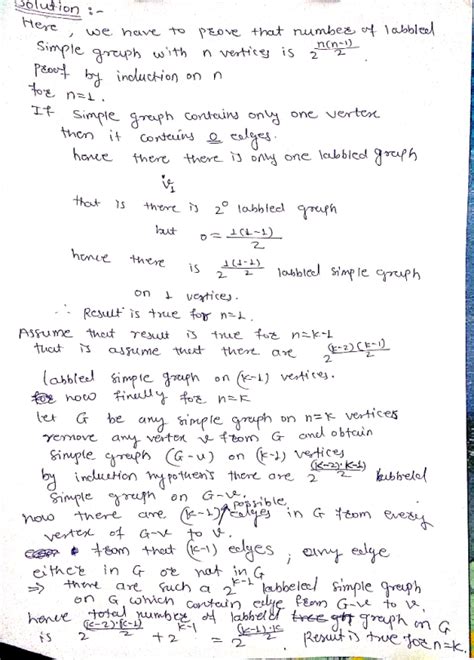 Solution :-
Here, we have to prove that number of labbled
Simple graph with n vertices is 2^(n(n-1)/2)
Proof by induction on n
for n=1.
If simple graph contains only one vertex
then it contains 0 edges.
hence there there is only one labbled graph
v1
that is there is 2^0 labbled graph
but 0 = 1(1-1)/2
hence there is 2^(1(1-1)/2) labbled simple graph
on 1 vertices.
∴ Result is true for n=1.
Assume that result is true for n=k-1
that is assume that there are 2^((k-2)(k-1)/2)
labbled simple graph on (k-1) vertices.
for now finally for n=k
let G be any simple graph on n=k vertices
remove any vertex v from G and obtain
simple graph (G-v) on (k-1) vertices
by induction hypothesis there are 2^((k-2)·(k-1)/2) labbeled
simple graph on G-v.
now there are (k-1) possible edges in G from every
vertex of G-v to v.
from that (k-1) edges, any edge
either in G or not in G
⇒ there are such a 2^(k-1) labbeled simple graph
on G which contain edge from G-v to v.
hence total number of labbeld graph on G
is 2^((k-2)·(k-1)/2) + 2^(k-1) = 2^((k-1)·k/2). Result is true for n=k.